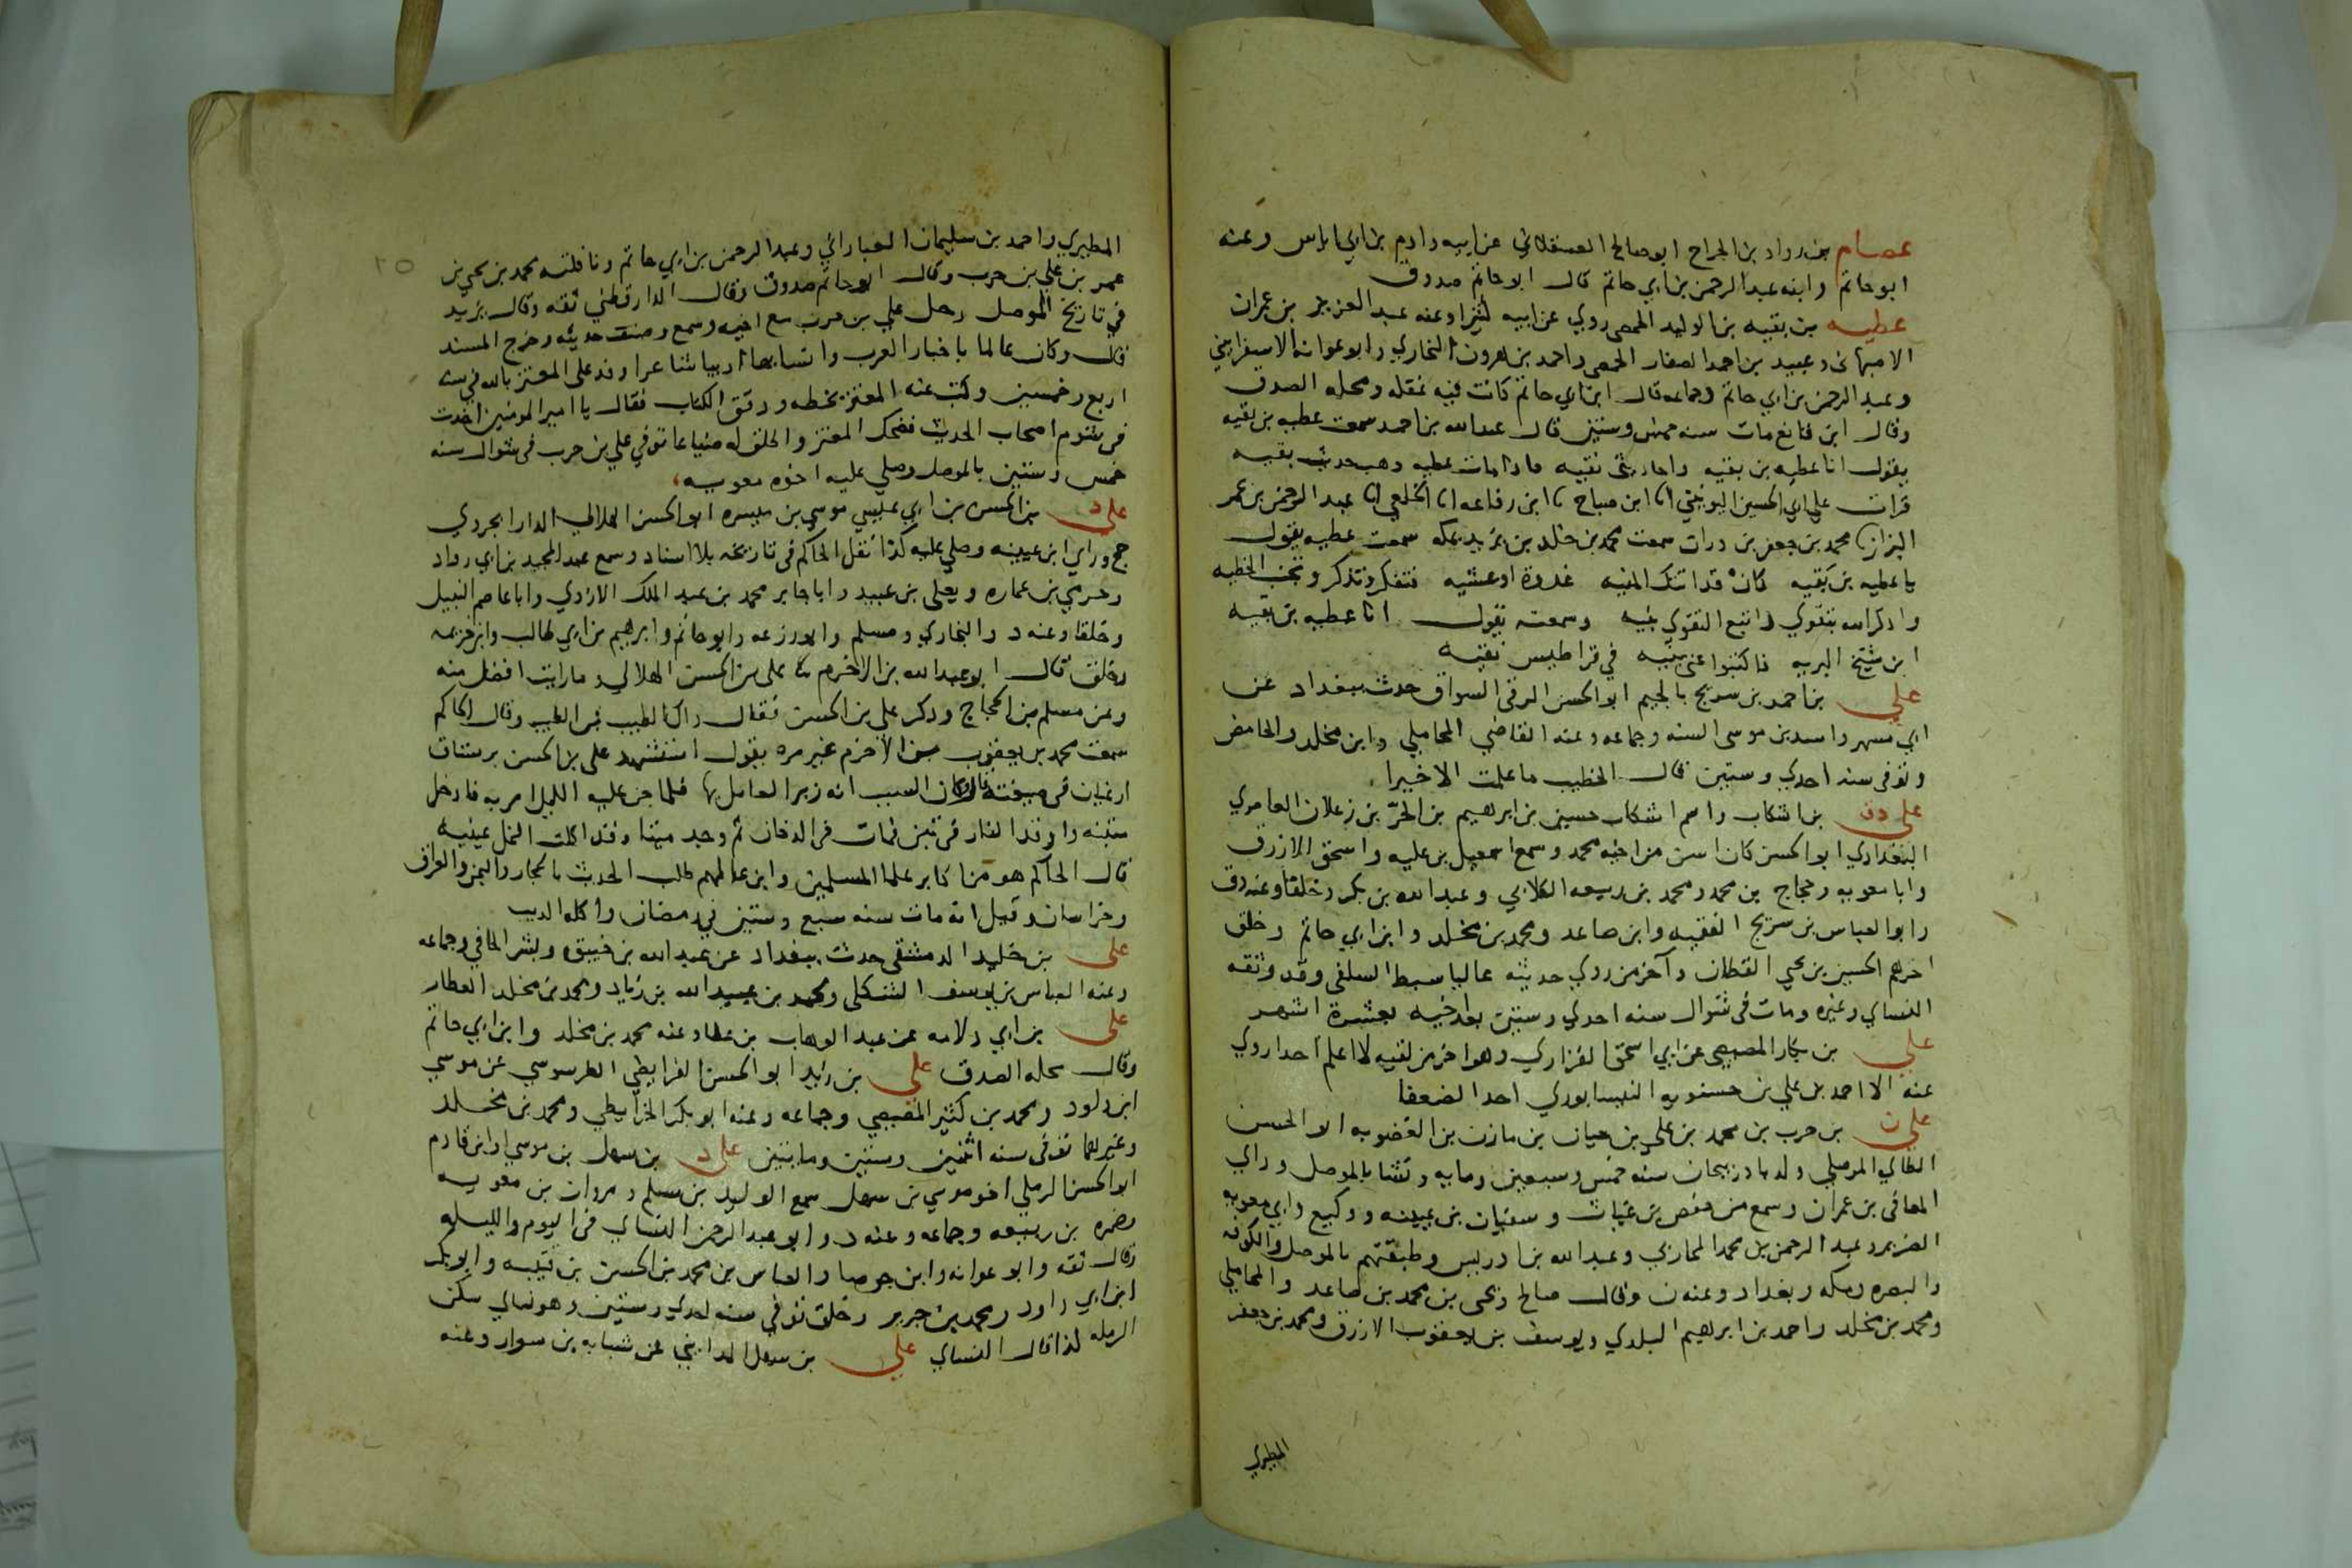 عصام بن رواد بن الجراح ابو صالح العسقلاني عن ابيه وادم بن ابي اياس وعنه
ابو حاتم وابنه عبد الرحمن بن ابي حاتم قال ابو حاتم صدوق
عطيه بن بقيه بن الوليد الحمصي روي عن ابيه كثيرا وعنه عبد العزيز بن عمران
الاصبهاني وعبيد بن احمد الصفار الحمصي واحمد بن هرون البخاري وابو عوانه الاسفرايني
وعبد الرحمن بن ابي حاتم وجماعه قال ابن ابي حاتم كانت فيه غفله ومحله الصدق
وقال ابن قانع مات سنه خمس وستين قال عبد الله بن احمد سمعت عطيه بن بقيه
يقول انا عطيه بن بقيه واحاديثي نقيه فاذا مات عطيه ذهب حديث بقيه
قرات علي ابي الحسين اليونيني انا ابن صباح نا ابن رفاعه انا الخلعي انا عبد الرحمن بن عمر
البزاز نا محمد بن جعفر بن دران سمعت محمد بن خلد بن يزيد بمكه سمعت عطيه يقول
يا عطيه بن بقيه كان قد اتتك المنيه غدوة او عشيه فتفكر وتذكر وتجنب الخطيه
واذكر الله بتقوي واتبع التقوي بنيه وسمعته يقول انا عطيه بن بقيه
ابن شيخ البريه فاكتبوا عني بنيه في قراطيس نقيه
علي بن احمد بن سريج بالجيم ابو الحسن الرقي السواق حدث ببغداد عن
ابي مسهر واسد بن موسى السنه وجماعه وعنه القاضي المحاملي وابن مخلد والحامض
وتوفي سنه احدي وستين قال الخطيب ما علمت الا خيرا
علي دق بن اشكاب واسم اشكاب حسين بن ابرهيم بن الحر بن زعلان العامري
البغدادي ابو الحسن كان اسن من اخيه محمد وسمع اسمعيل بن عليه واسحق الازرق
وابا معويه وحجاج بن محمد ومحمد بن ربيعه الكلابي وعبد الله بن بكر وخلقا وعنه دق
وابو العباس بن سريج الفقيه وابن صاعد ومحمد بن مخلد وابن ابي حاتم وخلق
اخرهم الحسين بن يحيي القطان وآخر من روي حديثه عاليا سبط السلفي وقد وثقه
النساي وغيره ومات في شوال سنه احدي وستين بعد اخيه بعشرة اشهر
علي بن بكار المصيصي عن ابي اسحق الفزاري وهو اخر من لقيه لا اعلم احدا روي
عنه الا احمد بن علي بن حسنويه النيسابوري احد الضعفا
علي ن بن حرب بن محمد بن علي بن حيان بن مازن بن الغضوبه ابو الحسن
الطائي الموصلي ولد باذربيجان سنه خمس وسبعين ومايه ونشا بالموصل وراي
المعافى بن عمران وسمع من حفص بن غياث وسفيان بن عيينه ووكيع وابي معويه
الضرير وعبد الرحمن بن محمد المحاربي وعبد الله بن ادريس وطبقتهم بالموصل والكوفه
والبصره ومكه وبغداد وعنه ن وقال صالح ويحيى بن محمد بن صاعد والمحاملي
ومحمد بن مخلد واحمد بن ابرهيم البلدي ويوسف بن يعقوب الازرق ومحمد بن جعفر
المطيري
٢٥
المطيري واحمد بن سليمان العباداني وعبد الرحمن بن ابي حاتم ونافلته محمد بن يحيي بن
عمر بن علي بن حرب وقال ابو حاتم صدوق وقال الدارقطني ثقه وقال يزيد
في تاريخ الموصل رحل علي بن حرب مع ابيه وسمع وصنف حديثه وخرج المسند
قال وكان عالما باخبار العرب وانسابها اديبا شاعرا وفد على المعتز بالله في سنه
اربع وخمسين وكتب عنه المعتز بخطه ودقق الكتاب فقال يا امير المومنين اخذت
في شوم اصحاب الحديث فضحك المعتز واطلق له ضياعا توفي علي بن حرب في شوال سنه
خمس وستين بالموصل وصلي عليه اخوه معويه
علي د بن الحسن بن ابي عيسي موسي بن ميسره ابو الحسن الهلالي الدارابجردي
حج وراي ابن عيينه وصلي عليه كذا نقل الحاكم في تاريخه بلا اسناد وسمع عبد المجيد بن ابي رواد
وحرمي بن عماره ويعلى بن عبيد وابا جابر محمد بن عبد الملك الازدي وابا عاصم النبيل
وخلقا وعنه د والبخاري ومسلم وابو زرعه وابو حاتم وابرهيم بن ابي طالب وابن خزيمه
وخلق قال ابو عبد الله بن الاخرم نا علي بن الحسن الهلالي وما رايت افضل منه
وعن مسلم بن الحجاج وذكر علي بن الحسن فقال ذاك الطيب بن الطيب وقال الحاكم
سمعت محمد بن يعقوب بن الاخرم غير مره يقول استشهد علي بن الحسن برستاق
ارغيان في ضيعته قال وكان السبب انه زبر العامل بها فلما جن عليه الليل امر به فادخل
متبنه واوقد النار في تبن فمات في الدخان ثم وجد ميتا وقد اكلت النمل عينيه
قال الحاكم هو من اكابر علما المسلمين وابن عالمهم طلب الحديث بالحجاز واليمن والعراق
وخراسان وقيل انه مات سنه سبع وستين في رمضان واكله الذيب
علي بن خليد الدمشقي حدث ببغداد عن عبد الله بن خبيق وبشر الحافي وجماعه
وعنه العباس بن يوسف الشكلي ومحمد بن عبيد الله بن زياد ومحمد بن مخلد العطار
علي بن ابي دلامه عن عبد الوهاب بن عطاء وعنه محمد بن مخلد وابن ابي حاتم
وقال محله الصدق علي بن زيد ابو الحسن الفرايضي الطرسوسي عن موسي
ابن داود ومحمد بن كثير المصيصي وجماعه وعنه ابو بكر الخرايطي ومحمد بن مخلد
وغيرهما توفي سنه اثنين وستين ومايتين علي د بن سهل بن موسي او ابن قادم
ابو الحسن الرملي اخو موسي بن سهل سمع الوليد بن مسلم ومروان بن معويه
وضمره بن ربيعه وجماعه وعنه د وابو عبد الرحمن النساي في اليوم والليله
وقال ثقه وابو عوانه وابن جوصا والعباس بن محمد بن الحسن بن قتيبه وابو بكر
ابن ابي داود ومحمد بن جرير وخلق توفي سنه احدي وستين وهو نسائي سكن
الرمله لذا قال النساي علي بن سهل المدايني عن شبابه بن سوار وعنه